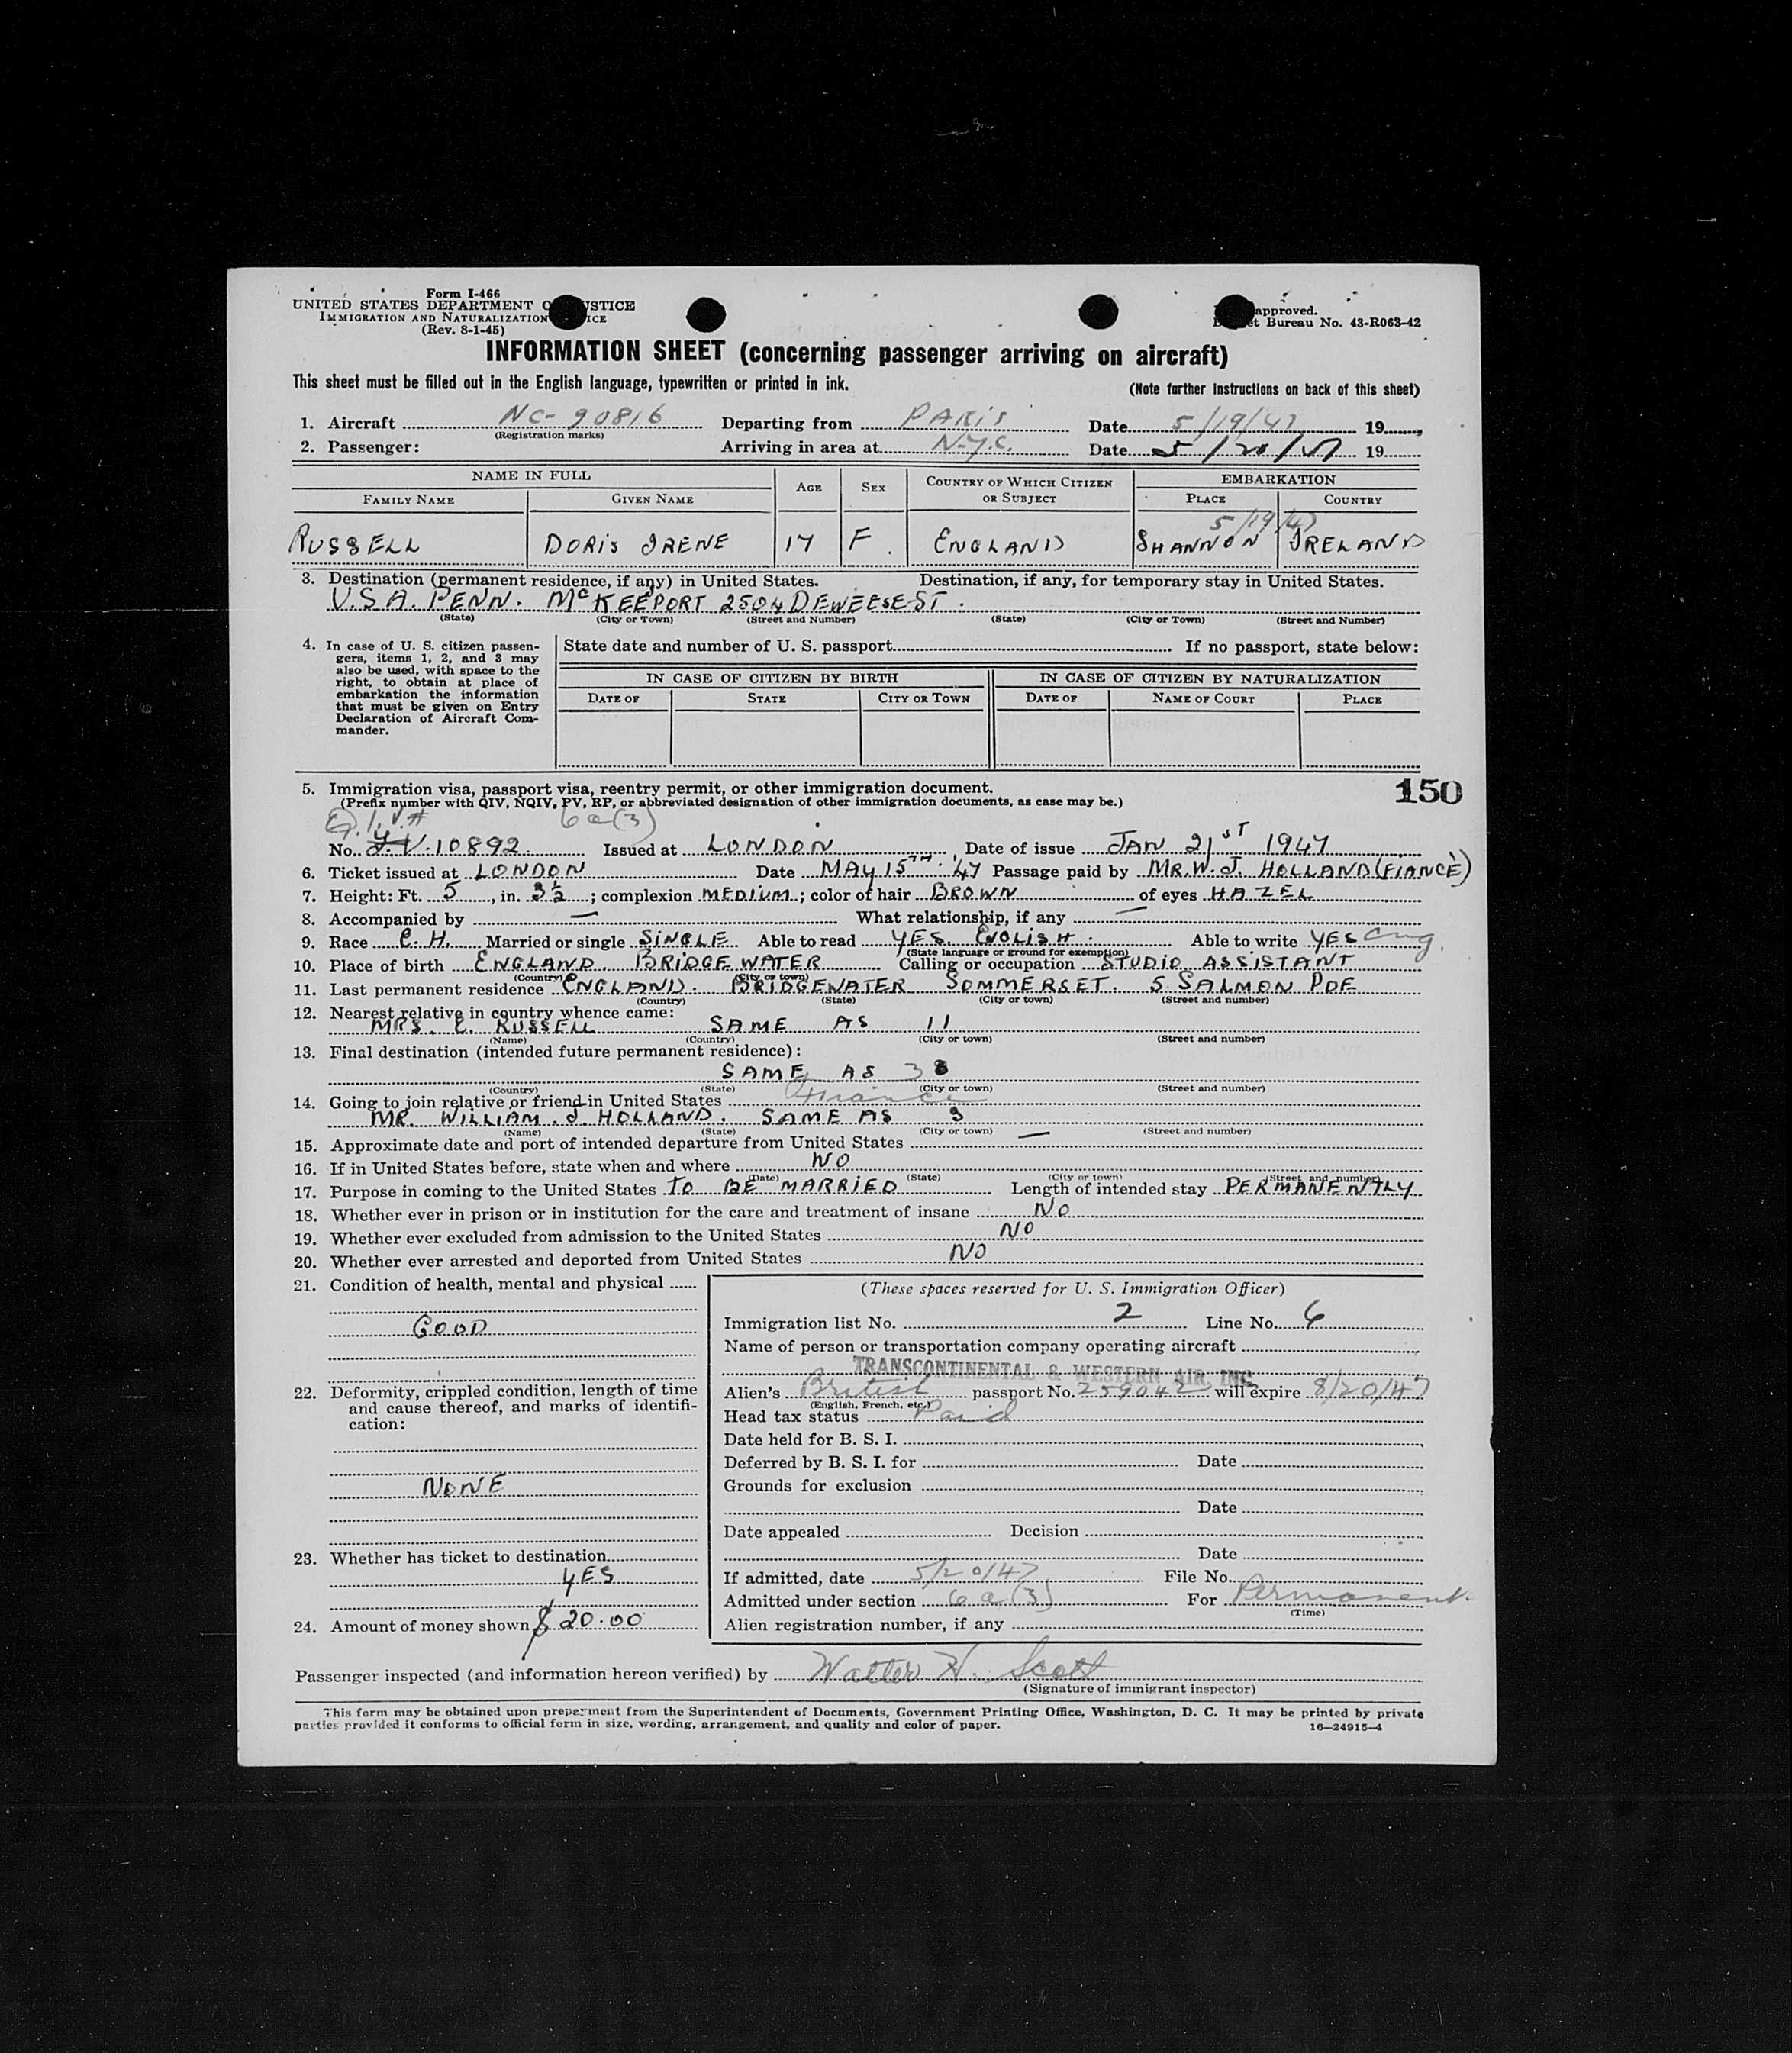 Form I-466
UNITED STATES DEPARTMENT OF JUSTICE
IMMIGRATION AND NATURALIZATION SERVICE
(Rev. 8-1-45)
approved.
Bureau No. 43-R063-42
INFORMATION SHEET (concerning passenger arriving on aircraft)
This sheet must be filled out in the English language, typewritten or printed in ink.
(Note further instructions on back of this sheet)
1. Aircraft NC-90816 Departing from PARIS Date 5/19/47 19
(Registration marks)
2. Passenger: Arriving in area at N.Y.C. Date 5/20/47 19
NAME IN FULL AGE SEX COUNTRY OF WHICH CITIZEN OR SUBJECT EMBARKATION
FAMILY NAME GIVEN NAME PLACE COUNTRY
5/19/47
RUSSELL DORIS IRENE 17 F. ENGLAND SHANNON IRELAND
3. Destination (permanent residence, if any) in United States. Destination, if any, for temporary stay in United States.
U.S.A. PENN. McKEEPORT 2504 DEWEESE ST.
(State) (City or Town) (Street and Number) (State) (City or Town) (Street and Number)
4. In case of U. S. citizen passen-
gers, items 1, 2, and 3 may
also be used, with space to the
right, to obtain at place of
embarkation the information
that must be given on Entry
Declaration of Aircraft Com-
mander.
State date and number of U. S. passport If no passport, state below:
IN CASE OF CITIZEN BY BIRTH IN CASE OF CITIZEN BY NATURALIZATION
DATE OF STATE CITY OR TOWN DATE OF NAME OF COURT PLACE
150
5. Immigration visa, passport visa, reentry permit, or other immigration document.
(Prefix number with QIV, NQIV, PV, RP, or abbreviated designation of other immigration documents, as case may be.)
Q.I.V.# 6a(3)
No. I.V. 10892 Issued at LONDON Date of issue JAN 21ST 1947
6. Ticket issued at LONDON Date MAY 15TH '47 Passage paid by MR. W. J. HOLLAND (FIANCÈ)
7. Height: Ft. 5, in. 3½; complexion MEDIUM; color of hair BROWN of eyes HAZEL
8. Accompanied by — What relationship, if any —
9. Race C. H. Married or single SINGLE Able to read YES. ENGLISH. Able to write YES Eng.
(State language or ground for exemption)
10. Place of birth ENGLAND. BRIDGEWATER Calling or occupation STUDIO ASSISTANT
(Country) (City or town)
11. Last permanent residence ENGLAND. BRIDGEWATER SOMMERSET. 5 SALMON PDE
(Country) (State) (City or town) (Street and number)
12. Nearest relative in country whence came:
MRS. E. RUSSELL SAME AS 11
(Name) (Country) (City or town) (Street and number)
13. Final destination (intended future permanent residence):
SAME AS 3
(Country) (State) (City or town) (Street and number)
14. Going to join relative or friend in United States Fiance
MR. WILLIAM. J. HOLLAND. SAME AS 3
(Name) (State) (City or town) (Street and number)
15. Approximate date and port of intended departure from United States —
16. If in United States before, state when and where NO
(Date) (State) (City or town) (Street and number)
17. Purpose in coming to the United States TO BE MARRIED Length of intended stay PERMANENTLY
18. Whether ever in prison or in institution for the care and treatment of insane NO
19. Whether ever excluded from admission to the United States NO
20. Whether ever arrested and deported from United States NO
21. Condition of health, mental and physical
GOOD
22. Deformity, crippled condition, length of time
and cause thereof, and marks of identifi-
cation:
NONE
23. Whether has ticket to destination
YES
24. Amount of money shown $20.00
(These spaces reserved for U. S. Immigration Officer)
Immigration list No. 2 Line No. 6
Name of person or transportation company operating aircraft
TRANSCONTINENTAL & WESTERN AIR, INC.
Alien's British passport No. 259042 will expire 8/20/47
(English, French, etc.)
Head tax status Paid
Date held for B. S. I.
Deferred by B. S. I. for Date
Grounds for exclusion
Date
Date appealed Decision
Date
If admitted, date 5/20/47 File No.
Admitted under section 6a(3) For Permanent
(Time)
Alien registration number, if any
Passenger inspected (and information hereon verified) by Walter H. Scott
(Signature of immigrant inspector)
This form may be obtained upon prepayment from the Superintendent of Documents, Government Printing Office, Washington, D. C. It may be printed by private
parties provided it conforms to official form in size, wording, arrangement, and quality and color of paper. 16—24915-4